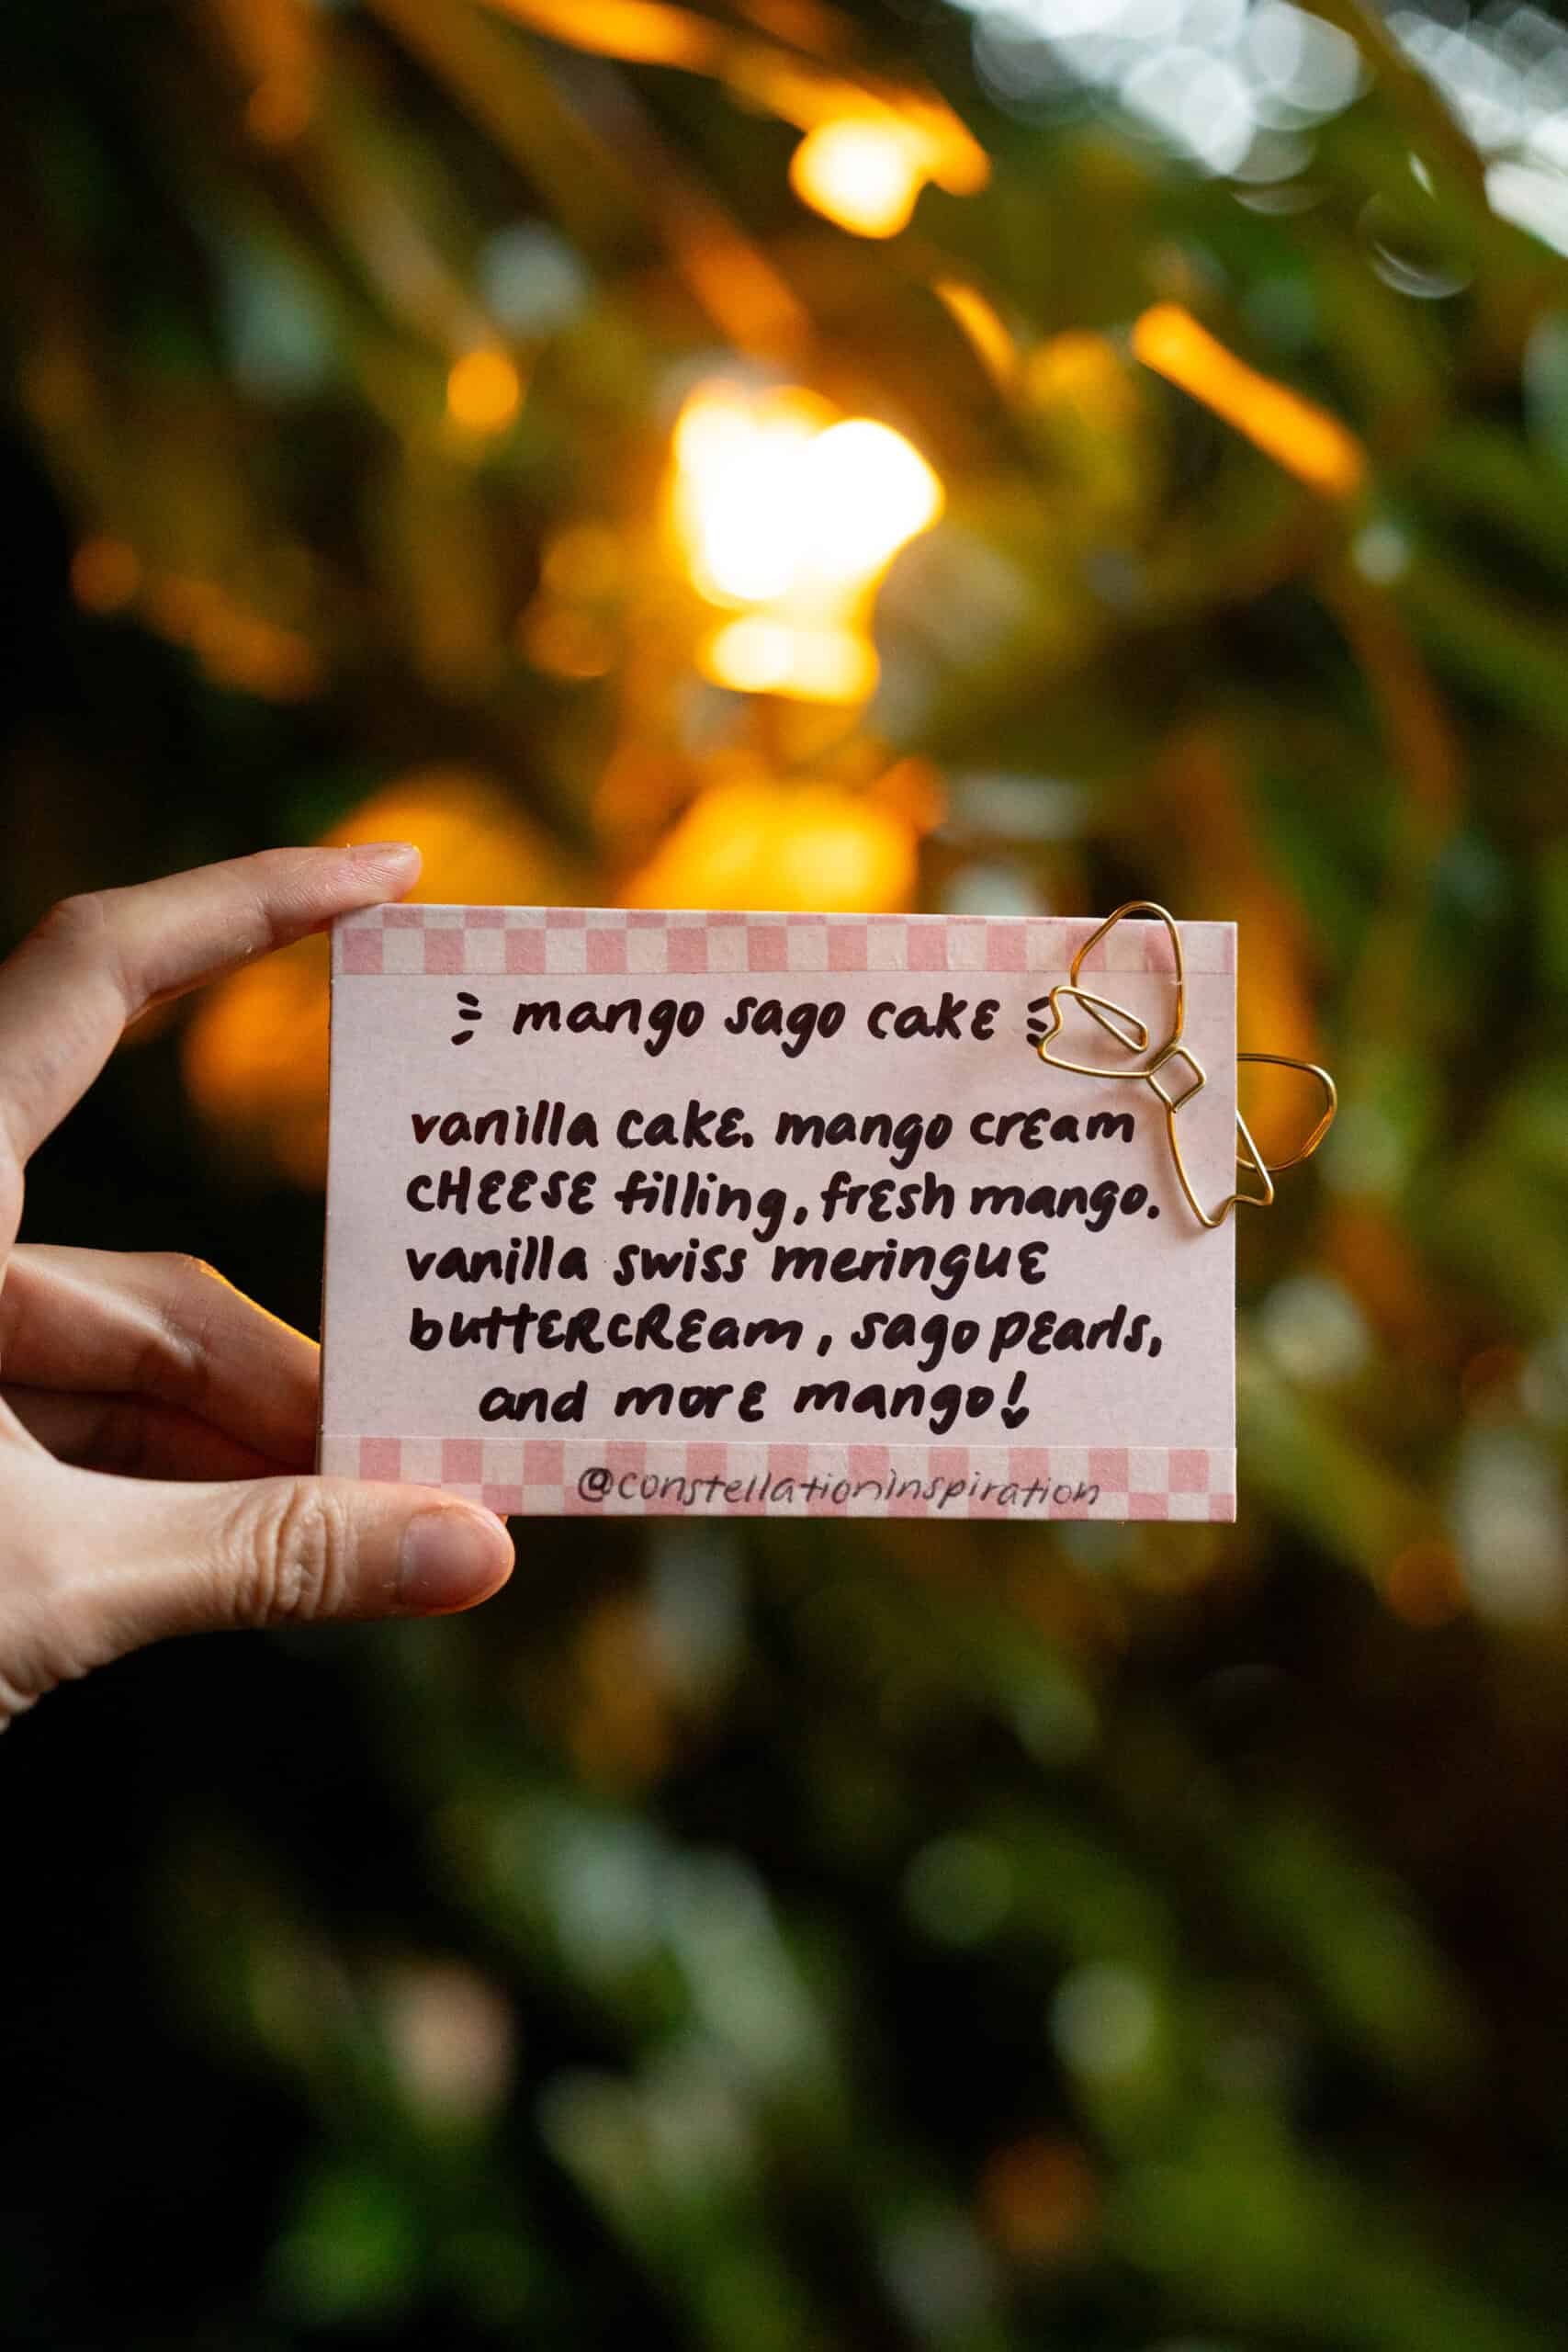 mango sago cake
vanilla cake. mango cream
CHEESE filling, fresh mango.
vanilla swiss meringue
buttERCREam, sago pearls,
and more mango!
@constellationinspiration